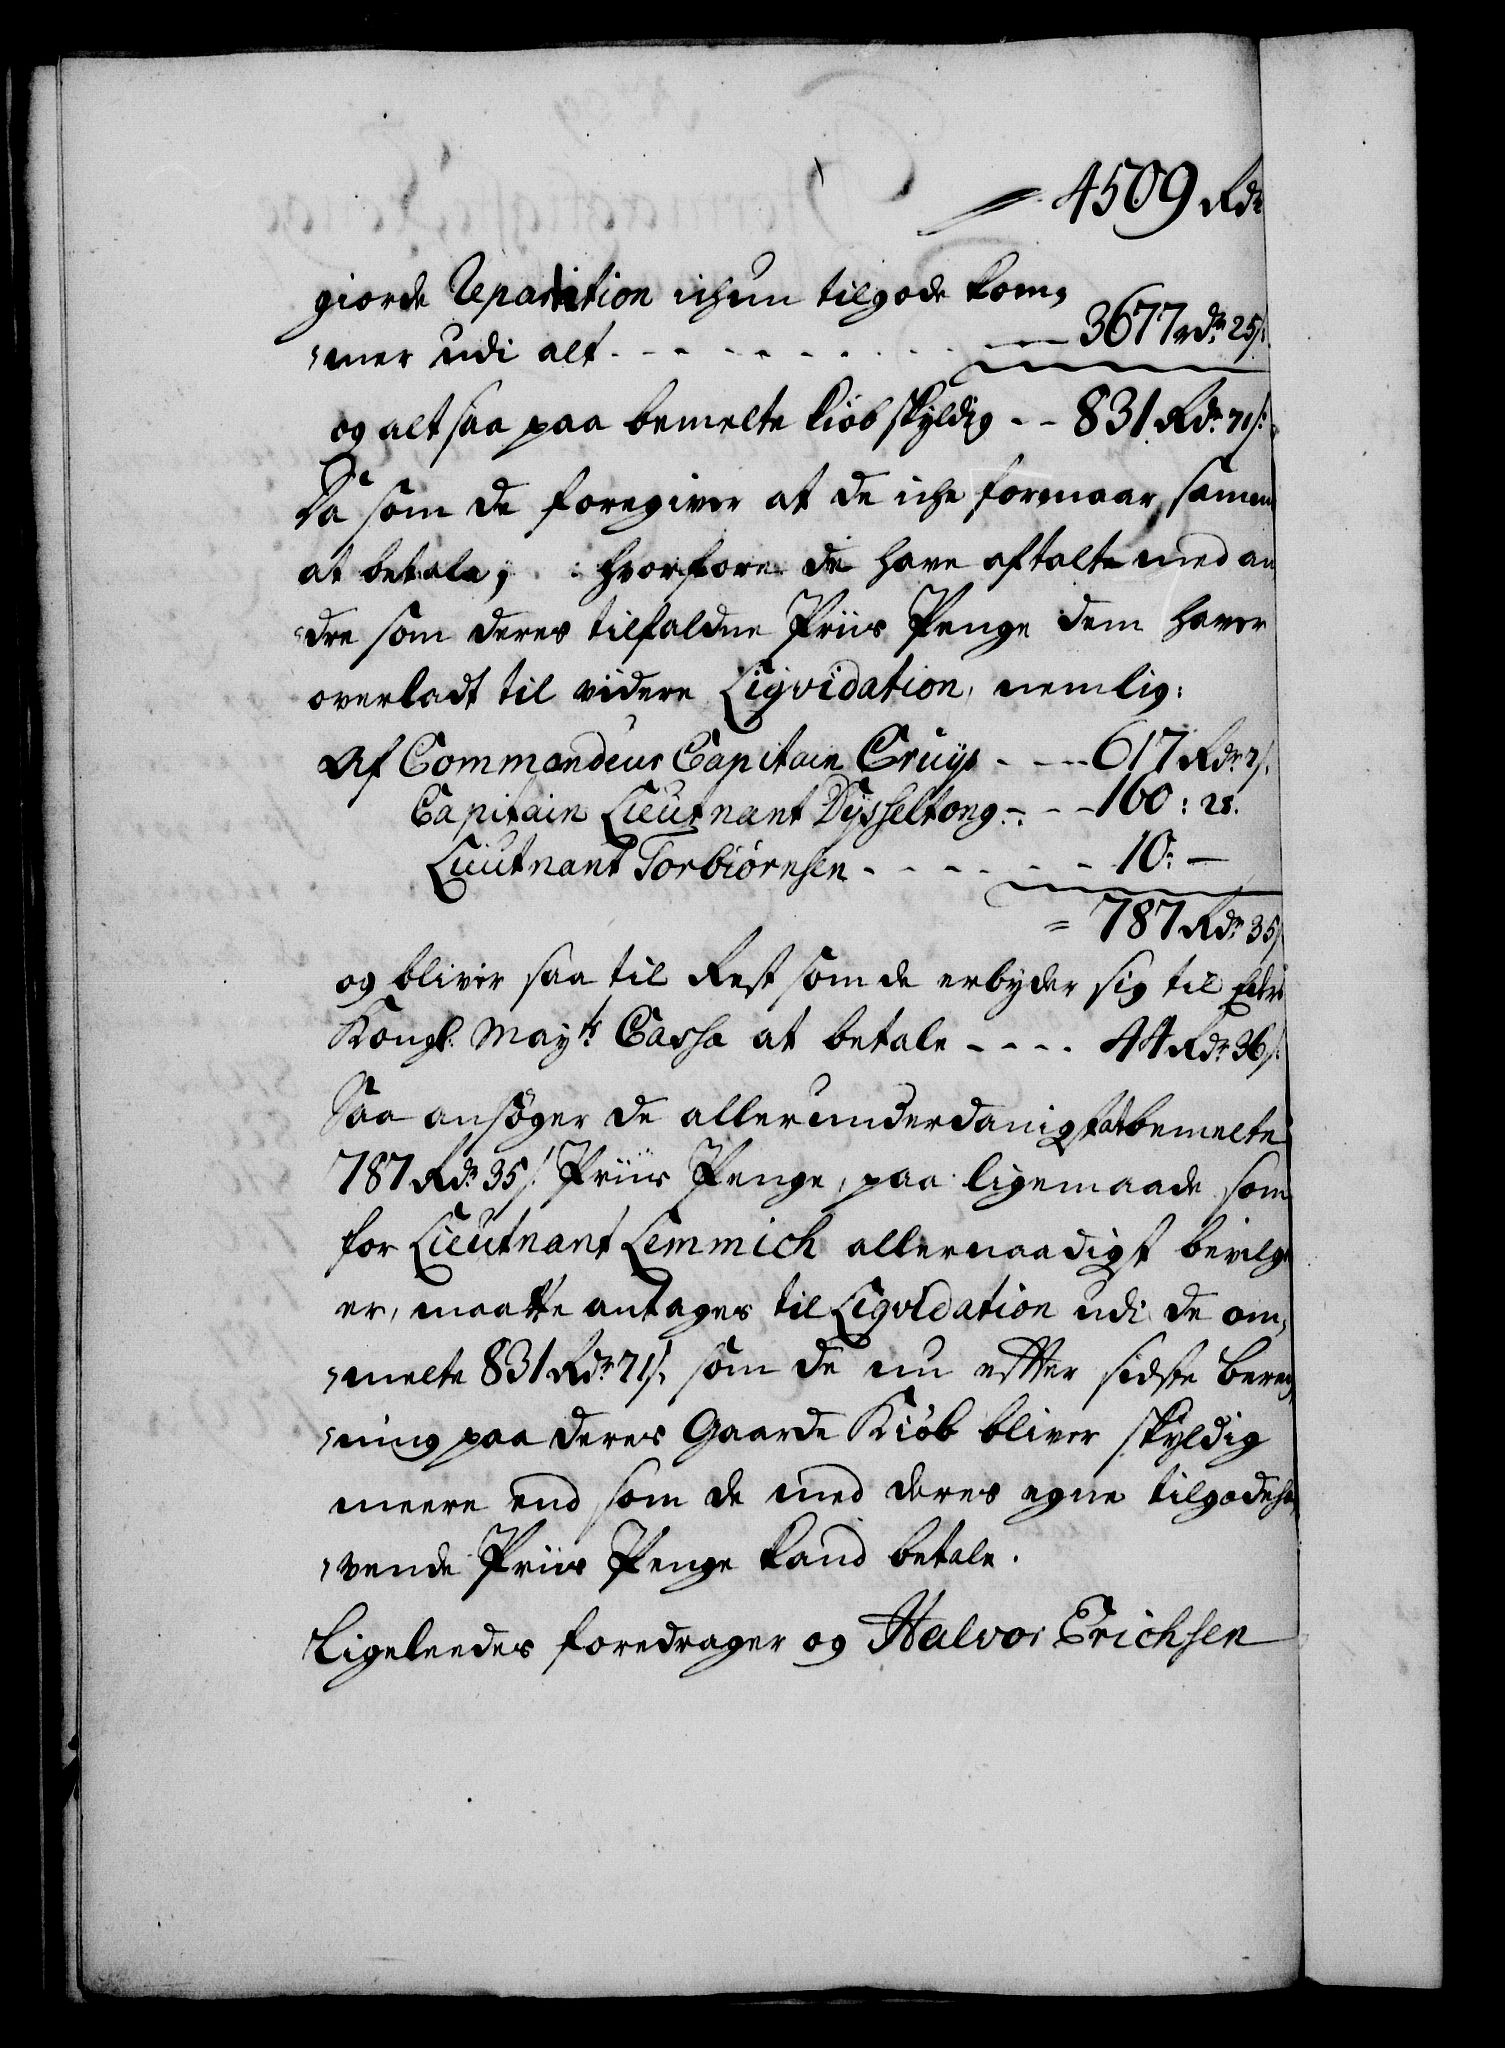 4509 Rdr
giorde Repartition ichun tilgode kom-
-mer udi alt - - - - - - - - 3677 rdr 25 s:
og altsaa paa bemelte kiøb skyldig - - 831 Rdr 71 s:
Da som de foregiver at de iche formaar samme
at betale; hvorfore de have aftalte med an
-dre som deres tilfaldne Priis Penge dem haver
overladt til videre Liqvidation, nemlig:
Af Commandeur Capitain Cruys - - - 617 Rdr 7 s:
Capitain Lieutnant Dysseltong - - - 160: 28.
Lieutnant Torbiørnsen - - - - - - 10: —
= 787 Rdr 35 s
og bliver saa til Rest som de erbyder sig til Eders
Kongl: Mayts Cassa at betale - - - - 44 Rdr 36 s:
Saa ansøger de allerunderdanigst at bemelte
787 Rdr 35 s: Priis Penge, paa ligemaade som
for Lieutnant Lemmich allernaadigst bevilget
er, maatte antages til Liqvidation udi de om-
-melte 831 Rdr 71 s: som de nu efter sidste bereg
-ning paa deres Gaarde Kiøb bliver skyldig
meere end som de med deres egne tilgodeha
-vende Priis Penge kand betale.
Ligeleedes foredrager og Halvor Erichsen